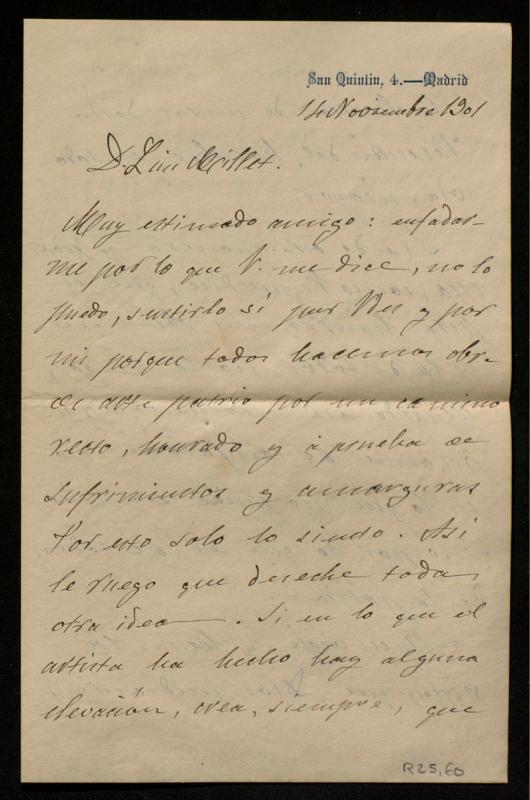 San Quintin, 4.—Madrid
14 Noviembre 1901
D. Luis Millet.
Muy estimado amigo: enfadar-
me por lo que V. me dice, no lo
puedo, sentirlo sí por Vdes y por
mí porque todos hacemos obra
de arte patrio por un camino
recto, honrado y á prueba de
sufrimientos y amarguras
Por esto solo lo siento. Así
le ruego que deseche toda
otra idea. Si en lo que el
artista ha hecho hay alguna
elevacion, crea, siempre, que
R25,60